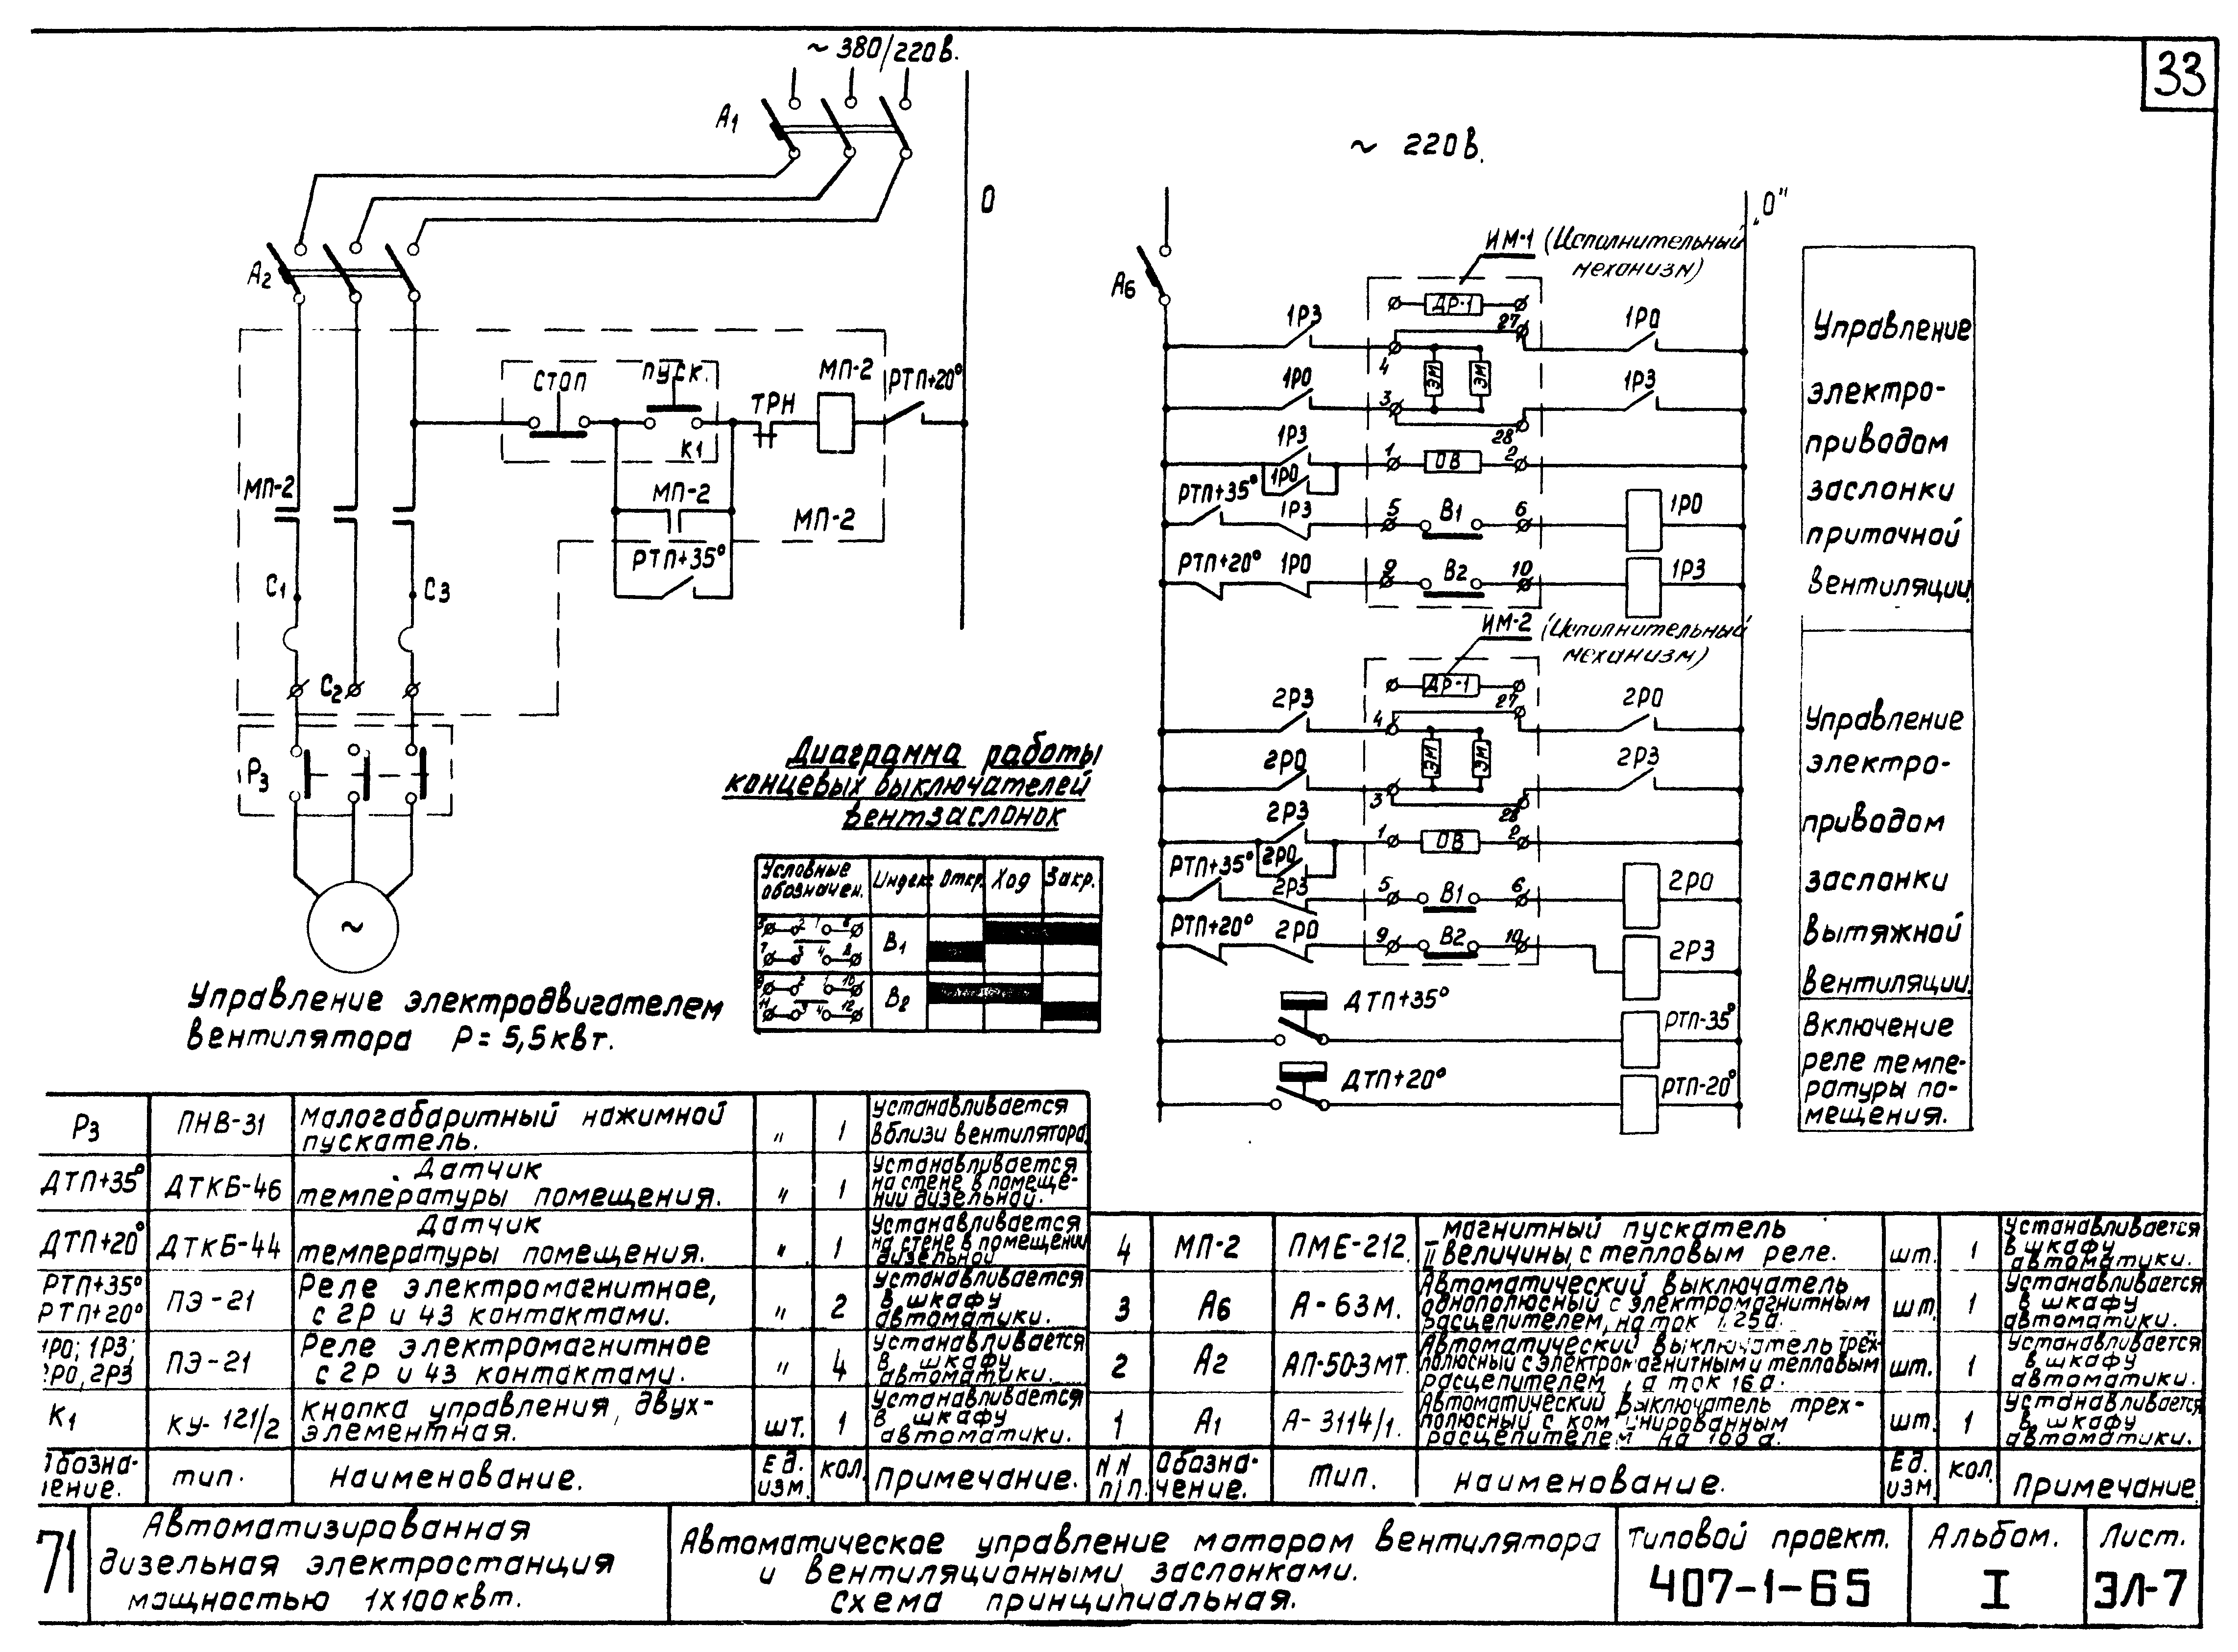 33
~ 380/220в.
А1
0
А2
СТОП
ПУСК.
К1
ТРН
МП-2
РТП+20°
МП-2
МП-2
МП-2
РТП+35°
С1
С3
С2
Р3
~
Управление электродвигателем
вентилятора Р= 5,5квт.
Диаграмма работы
концевых выключателей
вентзаслонок
Условные обозначен.
Индекс
Откр.
Ход
Закр.
5 2 1 6
7 3 4 8
В1
9 2 1 10
11 3 4 12
В2
~ 220в.
„0"
А6
ИМ-1 (Исполнительный
механизм)
ДР-1
1РЗ
4
27
1РО
ЭМ
ЭМ
1РО
3
28
1РЗ
1РЗ
1РО
1
ОВ
2
РТП+35°
1РЗ
5
В1
6
1РО
РТП+20°
1РО
9
В2
10
1РЗ
ИМ-2 (Исполнительный
механизм)
ДР-1
2РЗ
4
27
2РО
ЭМ
ЭМ
2РО
3
28
2РЗ
2РЗ
2РО
1
ОВ
2
РТП+35°
2РЗ
5
В1
6
2РО
РТП+20°
2РО
9
В2
10
2РЗ
ДТП+35°
РТП-35°
ДТП+20°
РТП-20°
Управление
электро-
приводом
заслонки
приточной
вентиляции.
Управление
электро-
приводом
заслонки
вытяжной
вентиляции.
Включение
реле темпе-
ратуры по-
мещения.
Р3
ПНВ-31
Малогабаритный нажимной
пускатель.
"
1
Устанавливается
вблизи вентилятора
ДТП+35°
ДТКБ-46
Датчик
температуры помещения.
"
1
Устанавливается
на стене в помеще-
нии дизельной.
ДТП+20°
ДТКБ-44
Датчик
температуры помещения.
"
1
Устанавливается
на стене в помещении
дизельной
РТП+35°
РТП+20°
ПЭ-21
Реле электромагнитное,
с 2Р и 4З контактами.
"
2
Устанавливается
в шкафу
автоматики.
1РО; 1РЗ;
2РО, 2РЗ
ПЭ-21
Реле электромагнитное
с 2Р и 4З контактами.
"
4
Устанавливается
в шкафу
автоматики.
К1
КУ-121/2
Кнопка управления, двух-
элементная.
шт.
1
Устанавливается
в шкафу
автоматики.
Обозна-
чение.
Тип.
Наименование.
Ед.
изм.
кол.
Примечание.
4
МП-2
ПМЕ-212.
Магнитный пускатель
II величины, с тепловым реле.
шт.
1
Устанавливается
в шкафу
автоматики.
3
А6
А-63М.
Автоматический выключатель
однополюсный с электромагнитным
расцепителем, на ток 1,25а.
шт.
1
Устанавливается
в шкафу
автоматики.
2
А2
АП-50-3МТ.
Автоматический выключатель трёх-
полюсный с электромагнитным и тепловым
расцепителем, на ток 16а.
шт.
1
Устанавливается
в шкафу
автоматики.
1
А1
А-3114/1.
Автоматический выключатель трех-
полюсный с комбинированным
расцепителем на 100а.
шт.
1
Устанавливается
в шкафу
автоматики.
NN
п/п.
Обозна-
чение.
Тип.
Наименование.
Ед.
изм.
кол.
Примечание
71
Автоматизированная
дизельная электростанция
мощностью 1х100квт.
Автоматическое управление мотором вентилятора
и вентиляционными заслонками.
Схема принципиальная.
Типовой проект.
407-1-65
Альбом.
I
Лист.
ЭЛ-7